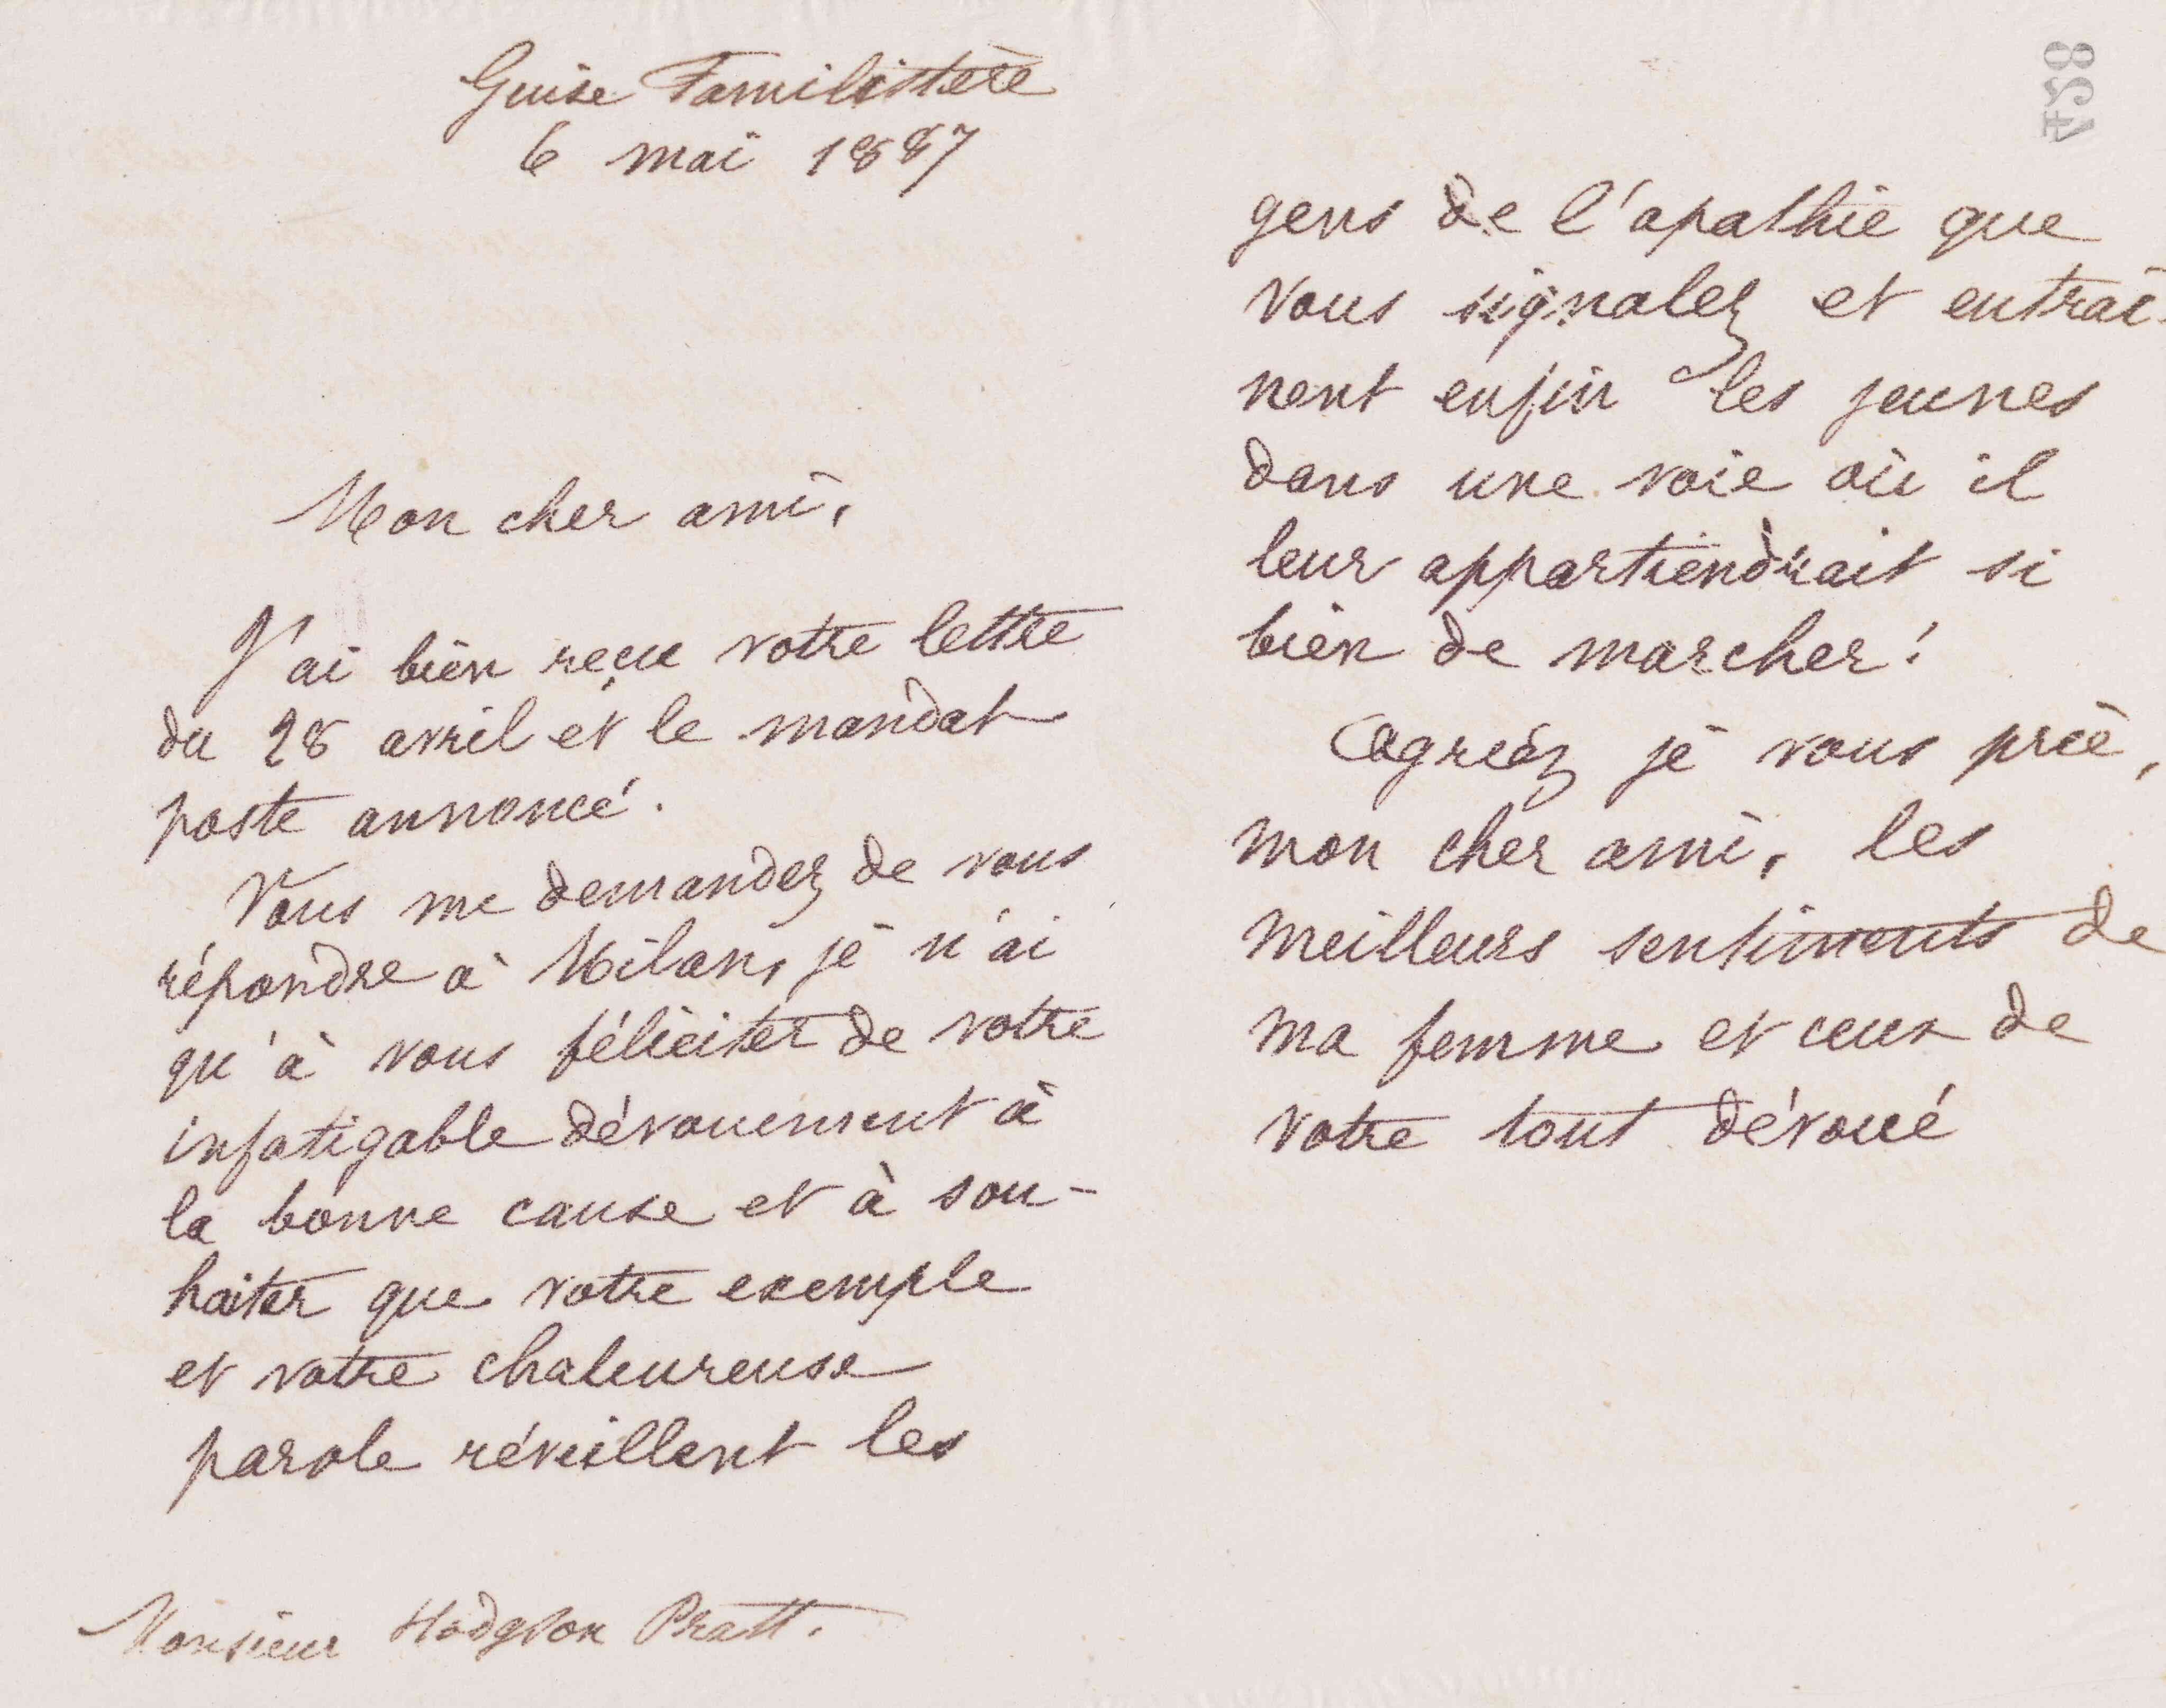 Guise Familistère
6 mai 1887
Mon cher ami,
J'ai bien reçu votre lettre
du 28 avril et le mandat
poste annoncé.
Vous me demandez de vous
répondre à Milan, je n'ai
qu'à vous féliciter de votre
infatigable dévouement à
la bonne cause et à sou-
haiter que votre exemple
et votre chaleureuse
parole réveillent les
Monsieur Hodgson Pratt.
458
gens de l'apathie que
vous signalez et entraî-
nent enfin les jeunes
dans une voie où il
leur appartiendrait si
bien de marcher!
Agréez je vous prie,
mon cher ami, les
meilleurs sentiments de
ma femme et ceux de
votre tout dévoué